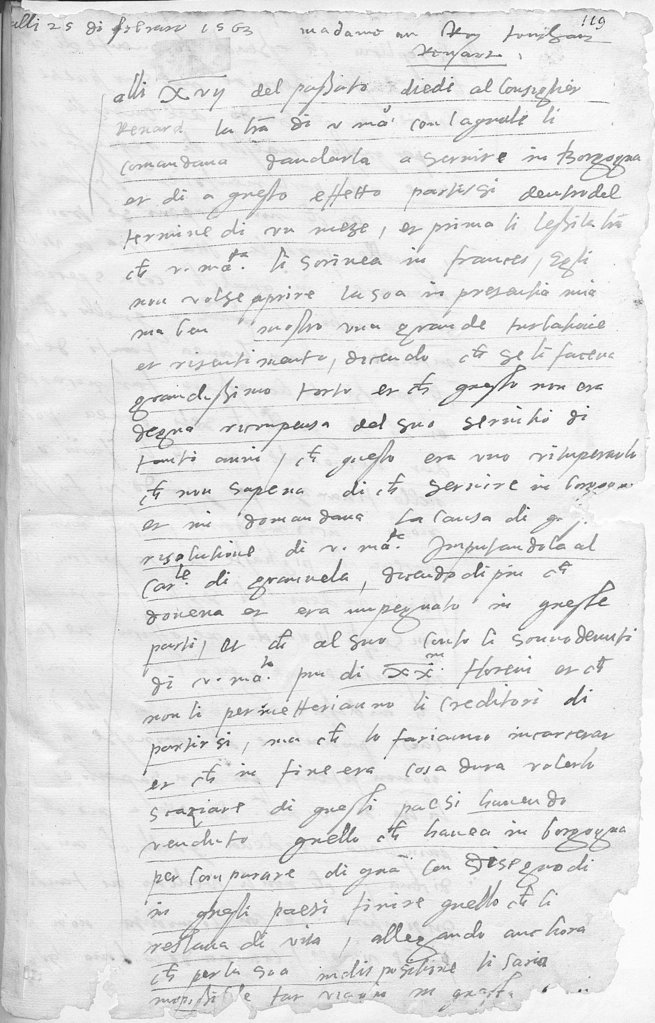 alli 25 di febraro 1563 madama au Roy touchant 119
Renart.
alli XVIJ del passato diedi al Consiglier
Renard la lrã di v. ma.ta con la quale li
comandaua d'andarla a seruire in Borgogna
et di a questo effetto partirsi dentro del
termine di vn mese, et prima li lessi la lrã
ch v. ma.ta li scriuea in frances, Egli
non volse aprire la soa in presentia mia
ma ben mostro vna grande turbatione
et risentimento, dicendo ch se li faceua
grandissimo torto et ch questo non era
degna ricompensa del suo seruitio di
tanti anni, ch questo era vno vituperarlo
ch non sapeua di ch seruire in borgogna
et mi domandaua la causa di q
risolutione di v. ma.ta Imputandola al
Car.le di granuela, dicendo di piu ch
doueua et era impegnato in queste
parti, et ch al suo conto li sono deuuti
di v. ma.ta piu di XX.m floreni et ch
non li permetteriano li creditori di
partirsi, ma ch lo fariano incarcerar
et ch in fine era cosa dura volerlo
scaziare di questi paesi hauendo
venduto quello ch hauea in borgogna
per comparare di qua con disegno di
in questi paesi finire quello ch li
restaua di vita, allegando anchora
ch per la sua indispositione li saria
impossibile far viaggi in questa